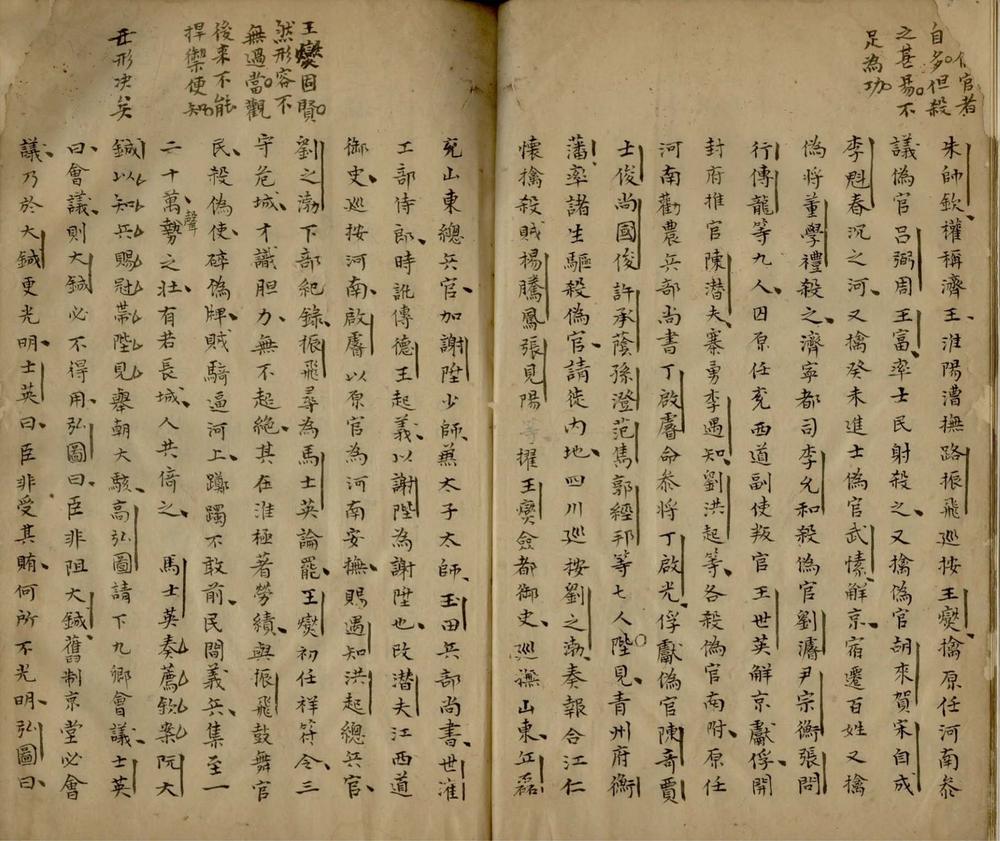 官者
自多但殺
之甚易不
足為功
朱師欽權稱濟王淮陽漕撫路振飛巡按王燮擒原任河南叅
議偽官呂弼周王富率士民射殺之又擒偽官胡來賀宋自成
李魁春沉之河又擒癸未進士偽官武愫解京宿遷百姓又擒
偽將董學禮殺之濟寧都司李允和殺偽官劉濬尹宗衡張問
行傅龍等九人因原任兗西道副使叛官王世英解京獻俘開
封府推官陳潛夫寨勇李遇知劉洪起等各殺偽官南附原任
河南勸農兵部尚書丁啟睿命叅將丁啟光俘獻偽官陳奇賈
士俊尚國俊許承蔭孫澄范雋郭經邦等七人陛見青州府衡
藩率諸生驅殺偽官請徙內地四川巡按劉之渤奏報合江仁
懷擒殺賊楊騰鳳張見陽等擢王燮僉都御史巡撫山東丘磊
王燮固賢
然形容不
無過當觀
後來不能
捍禦便知
丑形决矣
兗山東總兵官加謝陞少師兼太子太師王田兵部尚書世淮
工部侍郎時訛傳德王起義以謝陛為謝陞也改潛夫江西道
御史巡按河南啟睿以原官為河南安撫賜遇知洪起總兵官
劉之渤下部紀錄振飛尋為馬士英論罷王燮初任祥符令三
守危城才識胆力無不起絶其在淮極著勞績與振飛鼓舞官
民殺偽使碎偽牌賊騎逼河上躑躅不敢前民間義兵集至一
二十萬聲勢之壯有若長城人共倚之　馬士英奏薦欽案阮大
鋮以知兵賜冠帶陛見舉朝大駭高弘圖請下九卿會議士英
曰會議則大鋮必不得用弘圖曰臣非阻大鋮舊制京堂必會
議乃於大鋮更光明士英曰臣非受其賄何所不光明弘圖曰